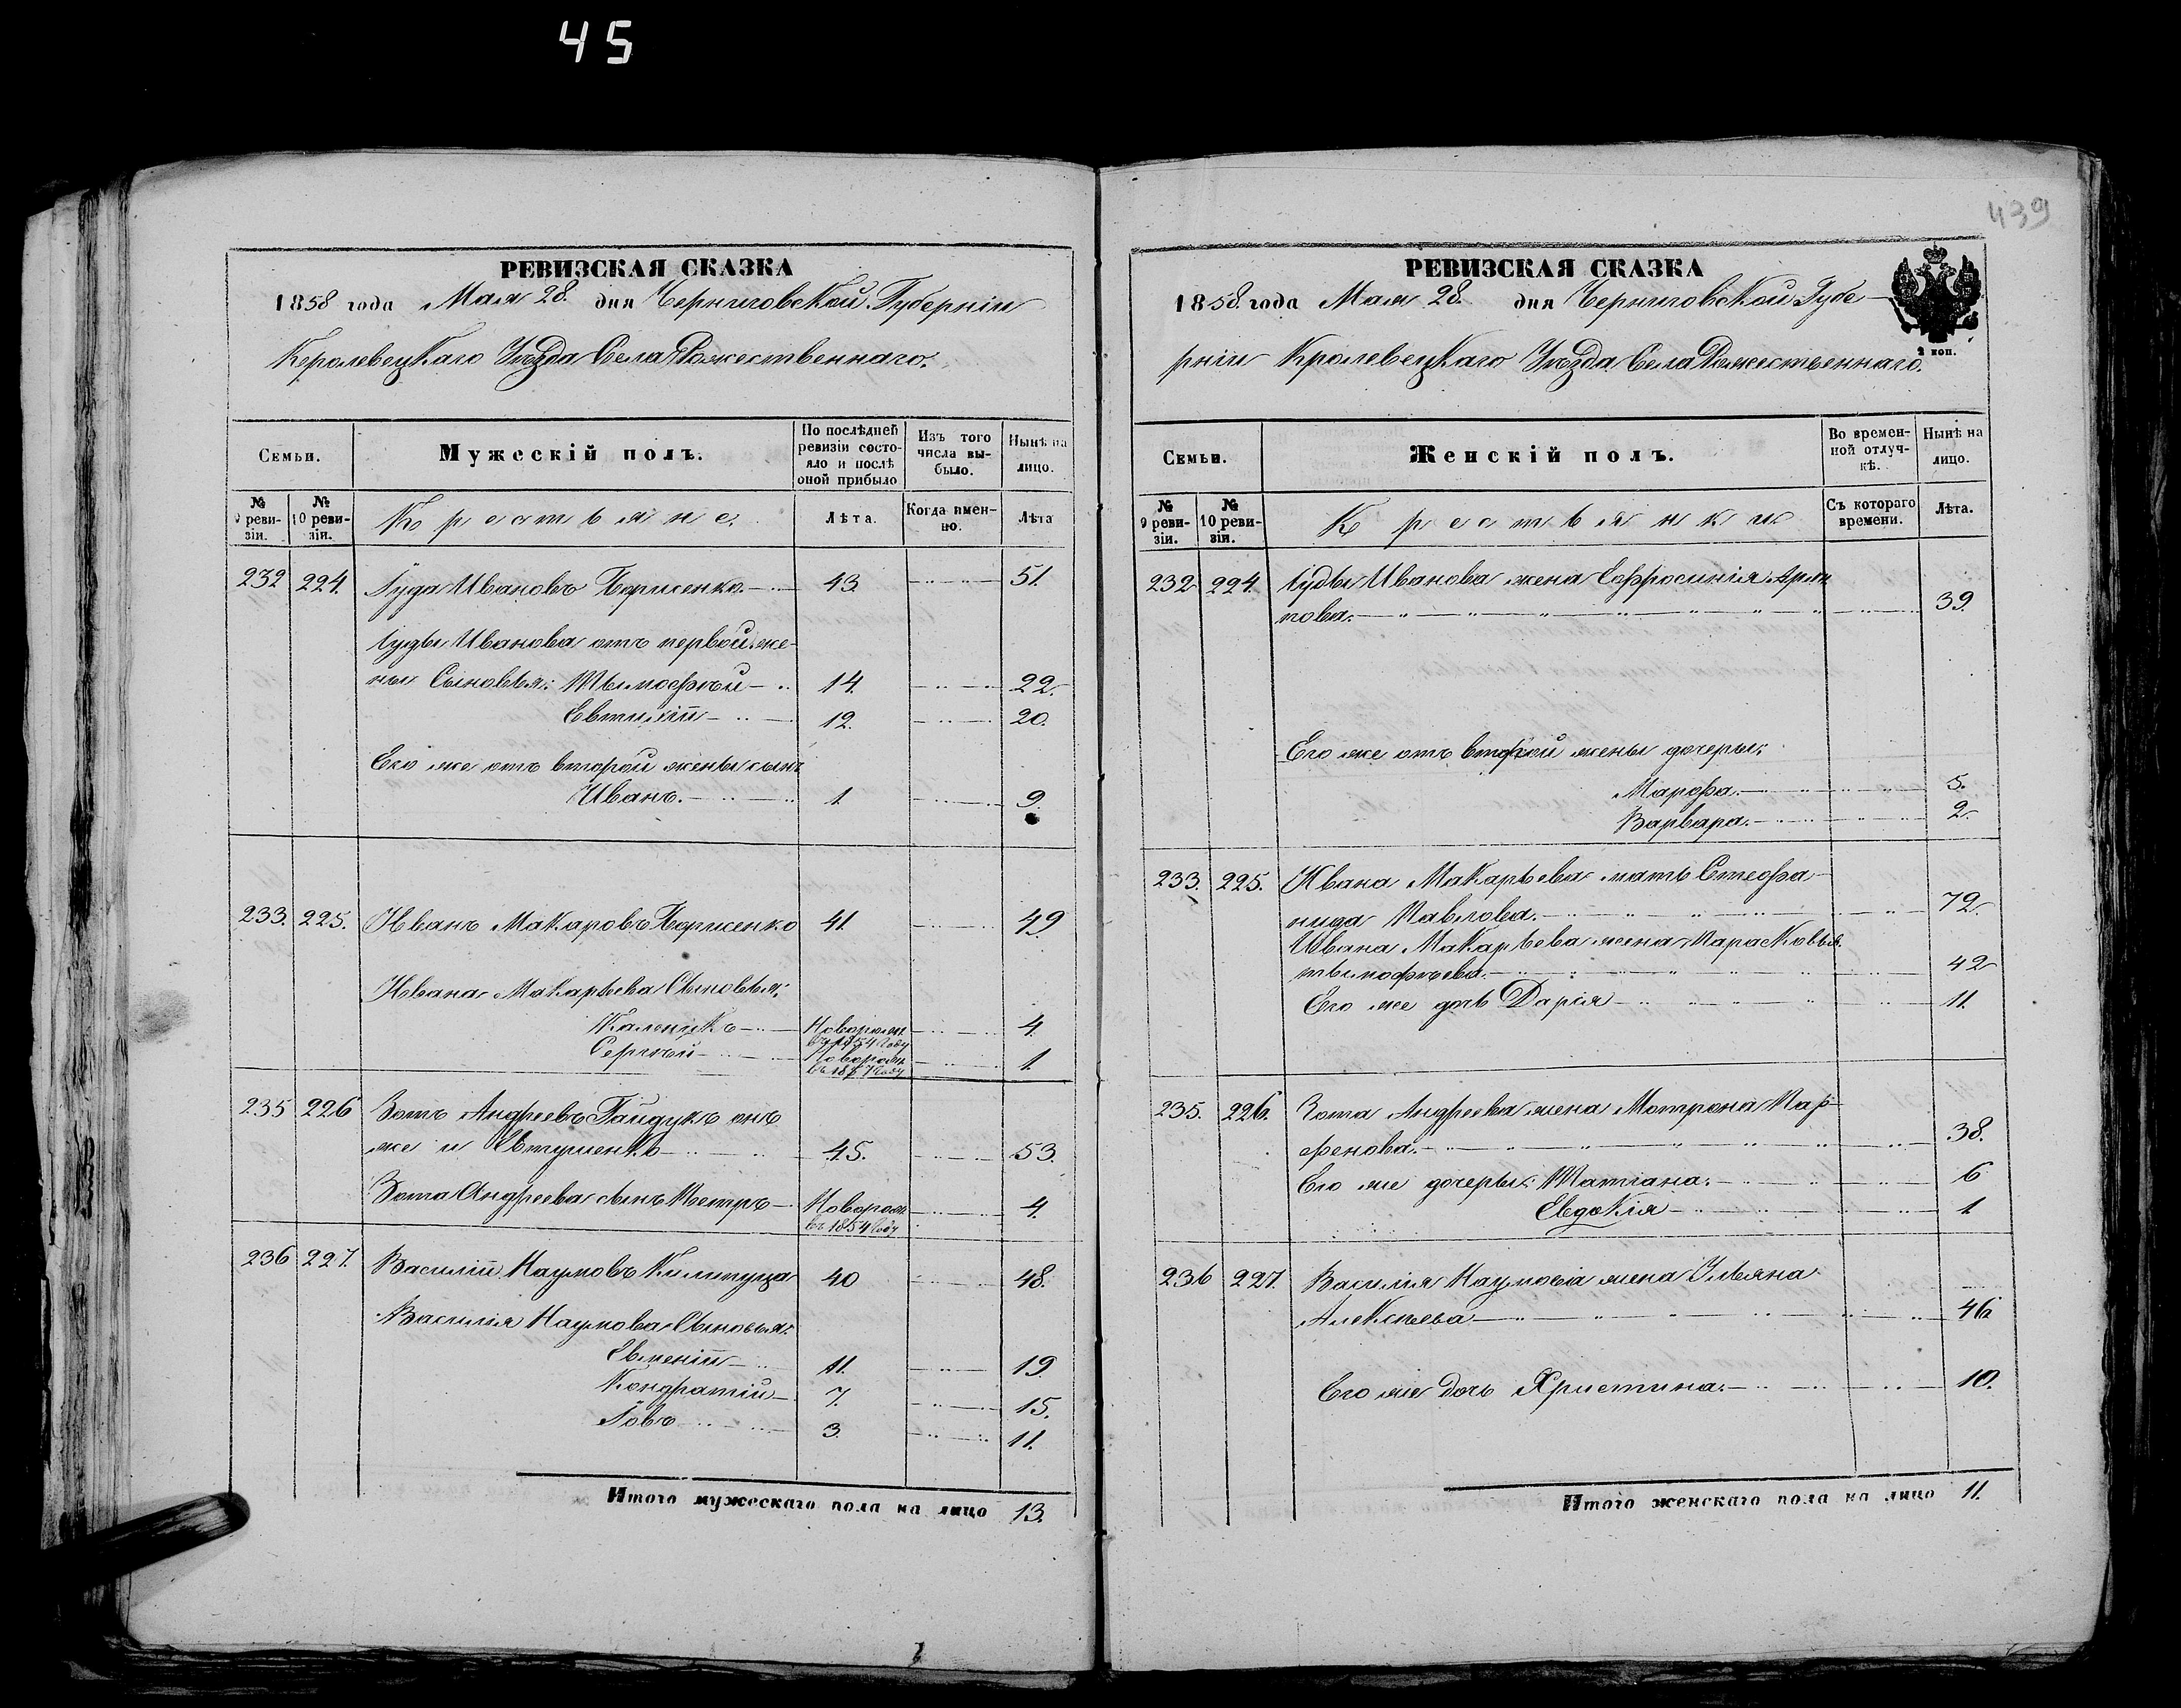 45
РЕВИЗСКАЯ СКАЗКА
1858 года Мая 28. дня Черниговской Губерніи
Кеpолевецкаго Уѣзда Села Рожественнаго.
Семьи.
Мужескій полъ.
По послѣдней ревизіи состояло и послѣ оной прибыло
Изъ того числа выбыло.
Нынѣ на лицо.
№ 9 ревизіи.
№ 10 ревизіи.
Крестьяне.
Лѣта.
Когда имено.
Лѣта
232 224. Іуда Ивановъ Борисенко. 43 51.
Іуды Иванова отъ первой же-
ны Сыновья: Тымофѣй 14. 22.
Евтихій 12. 20.
Его же отъ второй жены сынъ
Иванъ. 1. 9.
233. 225. Иванъ Макаровъ Борисенко 41. 49.
Ивана Макарьева Сыновья:
Каленикъ Новорожд. 4.
въ 1854 Году
Сергѣй Новорож. 1.
въ 1857 Году
235 226 Зотъ Андреевъ Гайдукъ онъ
же и Евтушенко 45. 53.
Зота Андреева сынъ Петръ Новорож 4.
въ 1854 Году
236 227. Василій Наумовъ 40 48.
Василія Наумова Сыновья:
Евменій 11. 19.
Кондратій 7. 15.
Іовъ 3. 11.
Итого мужескаго пола на лицо 13.
439
РЕВИЗСКАЯ СКАЗКА
1858. года Мая 28. дня Черниговской Губе
2 коп.
рніи Кролевецкаго Уѣзда Села Рожественнаго.
Семьи.
Женскій полъ.
Во временной отлучкѣ.
Нынѣ на лицо.
№ 9 ревизіи.
№ 10 ревизіи.
Крестьянки
Съ котораго времени.
Лѣта.
232 224. Іуды Иванова жена Ефросинія
39.
Его же отъ второй жены дочеры:
Марфа. 5.
Варвара. 2.
233. 225. Ивана Макарьева мать Стефа
нида Павлова. 72.
Ивана Макарьева жена Парасковья
тымофѣева. 42
Его же дочь Дарія 11.
235. 226. Зота Андреева жена Мотрона Пар-
фенова. 38.
Его же дочеры: Татіана. 6
Евдокія 1
236 227. Василія Наумова жена Ульяна
Алексѣева 46
Его же дочь Христина. 10.
Итого женскаго пола на лицо 11.